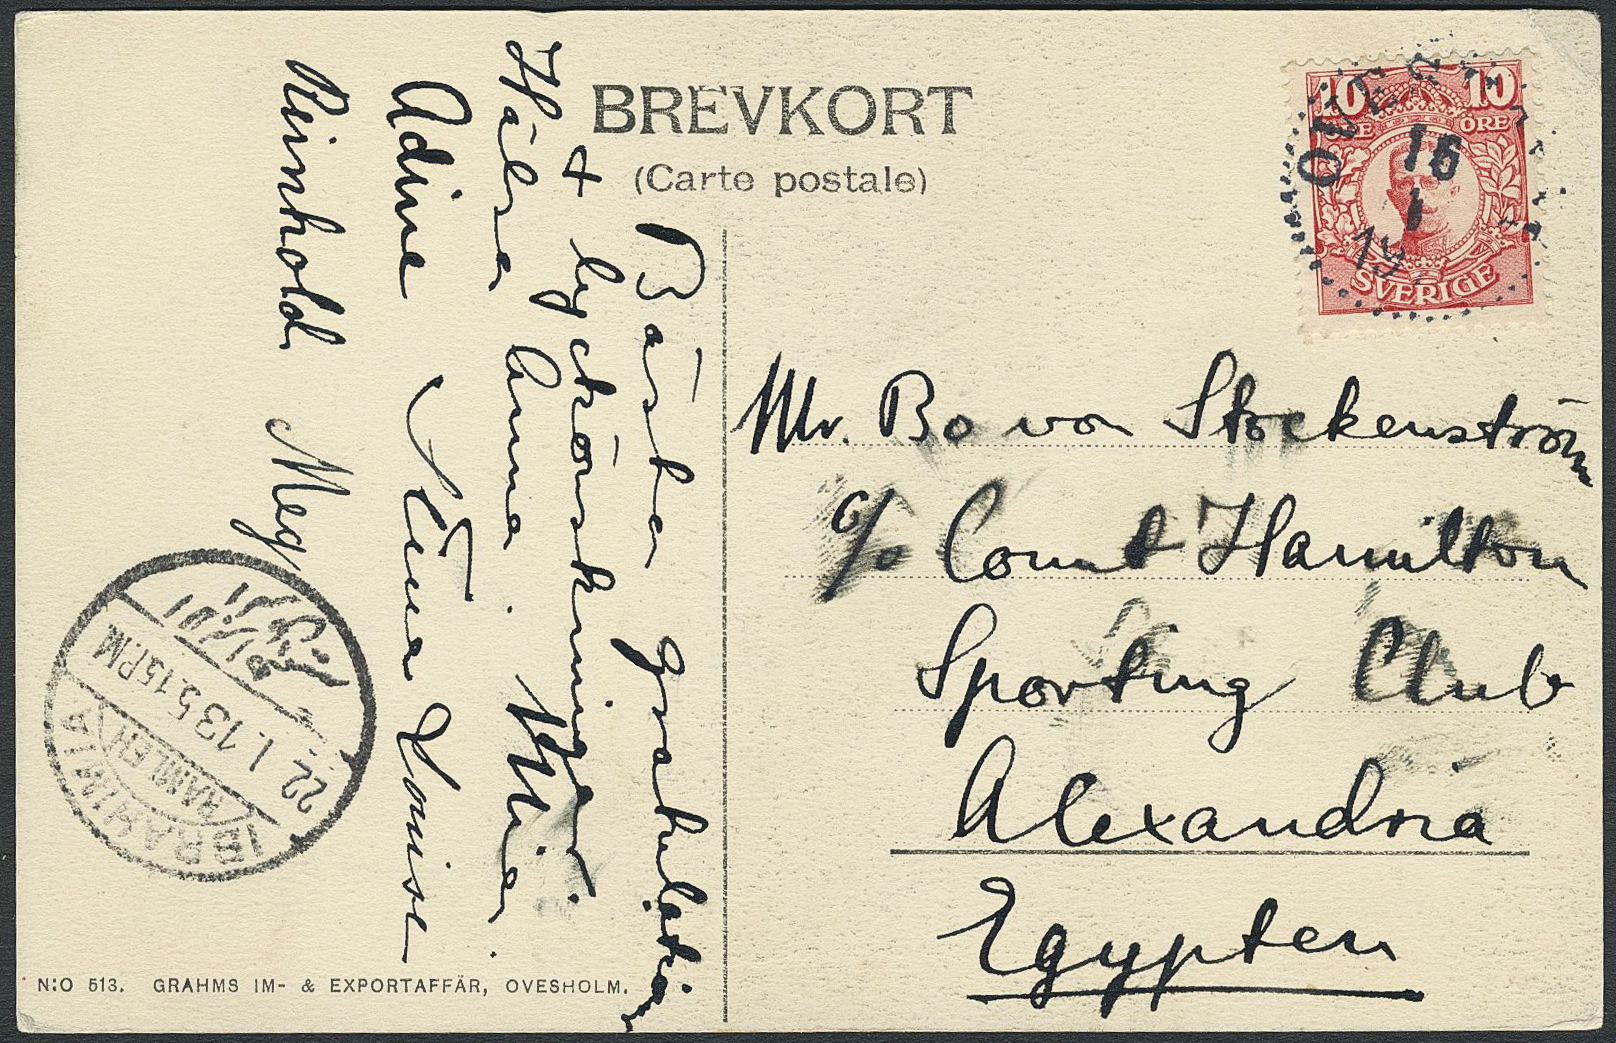 BREVKORT
(Carte postale)
10 10
ÖRE ÖRE
SVERIGE
16
1
Bästa gratulation
+ lyckönskningar.
Hälsa Anna. Mia.
Adine Stina Louise
Reinhold Meg
Mr. Bo von Stockenström
c/o Count Hamilton
Sporting Club
Alexandria
Egypten
22. 1. 13 5.15 PM
RAMLEH
IBRAHIMIA
N:O 513. GRAHMS IM- & EXPORTAFFÄR, OVESHOLM.